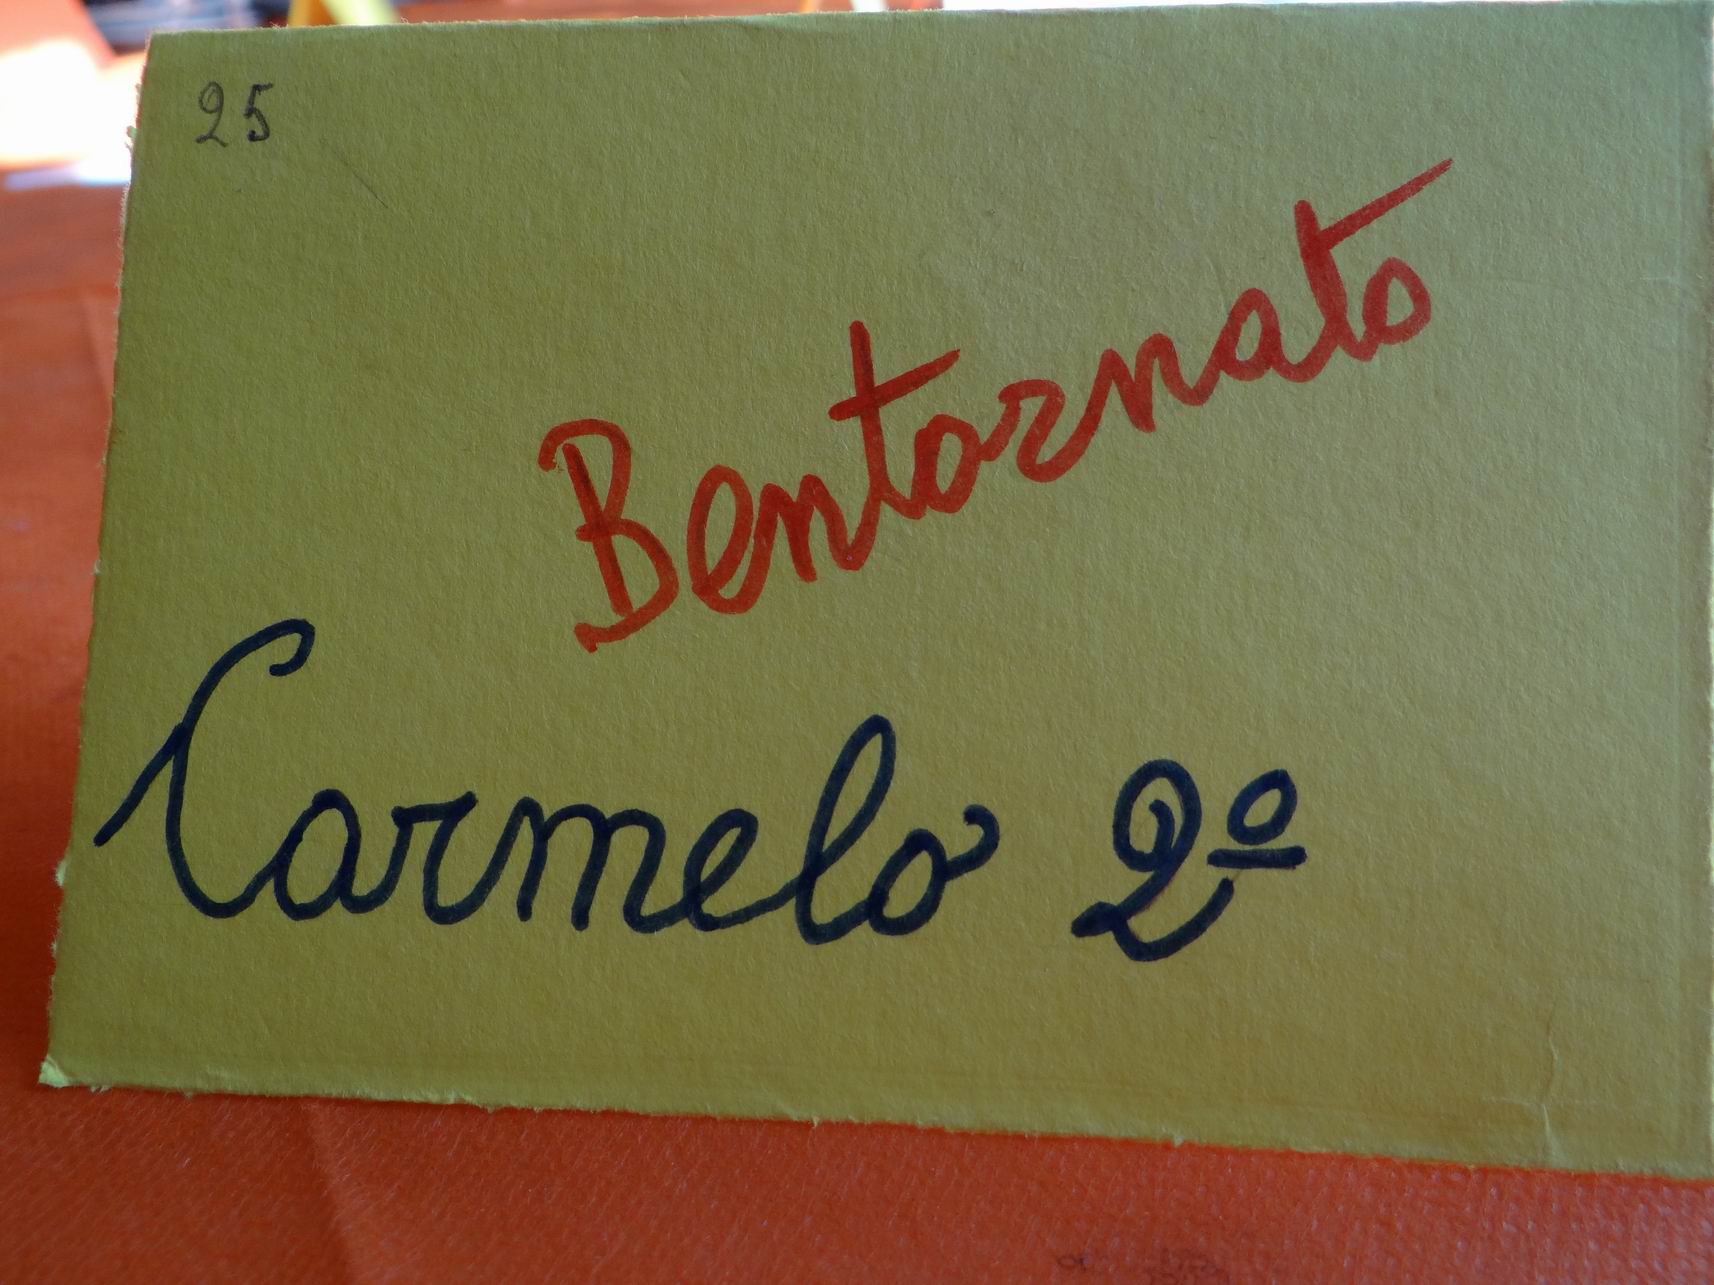 25
Bentornato
Carmelo 2º